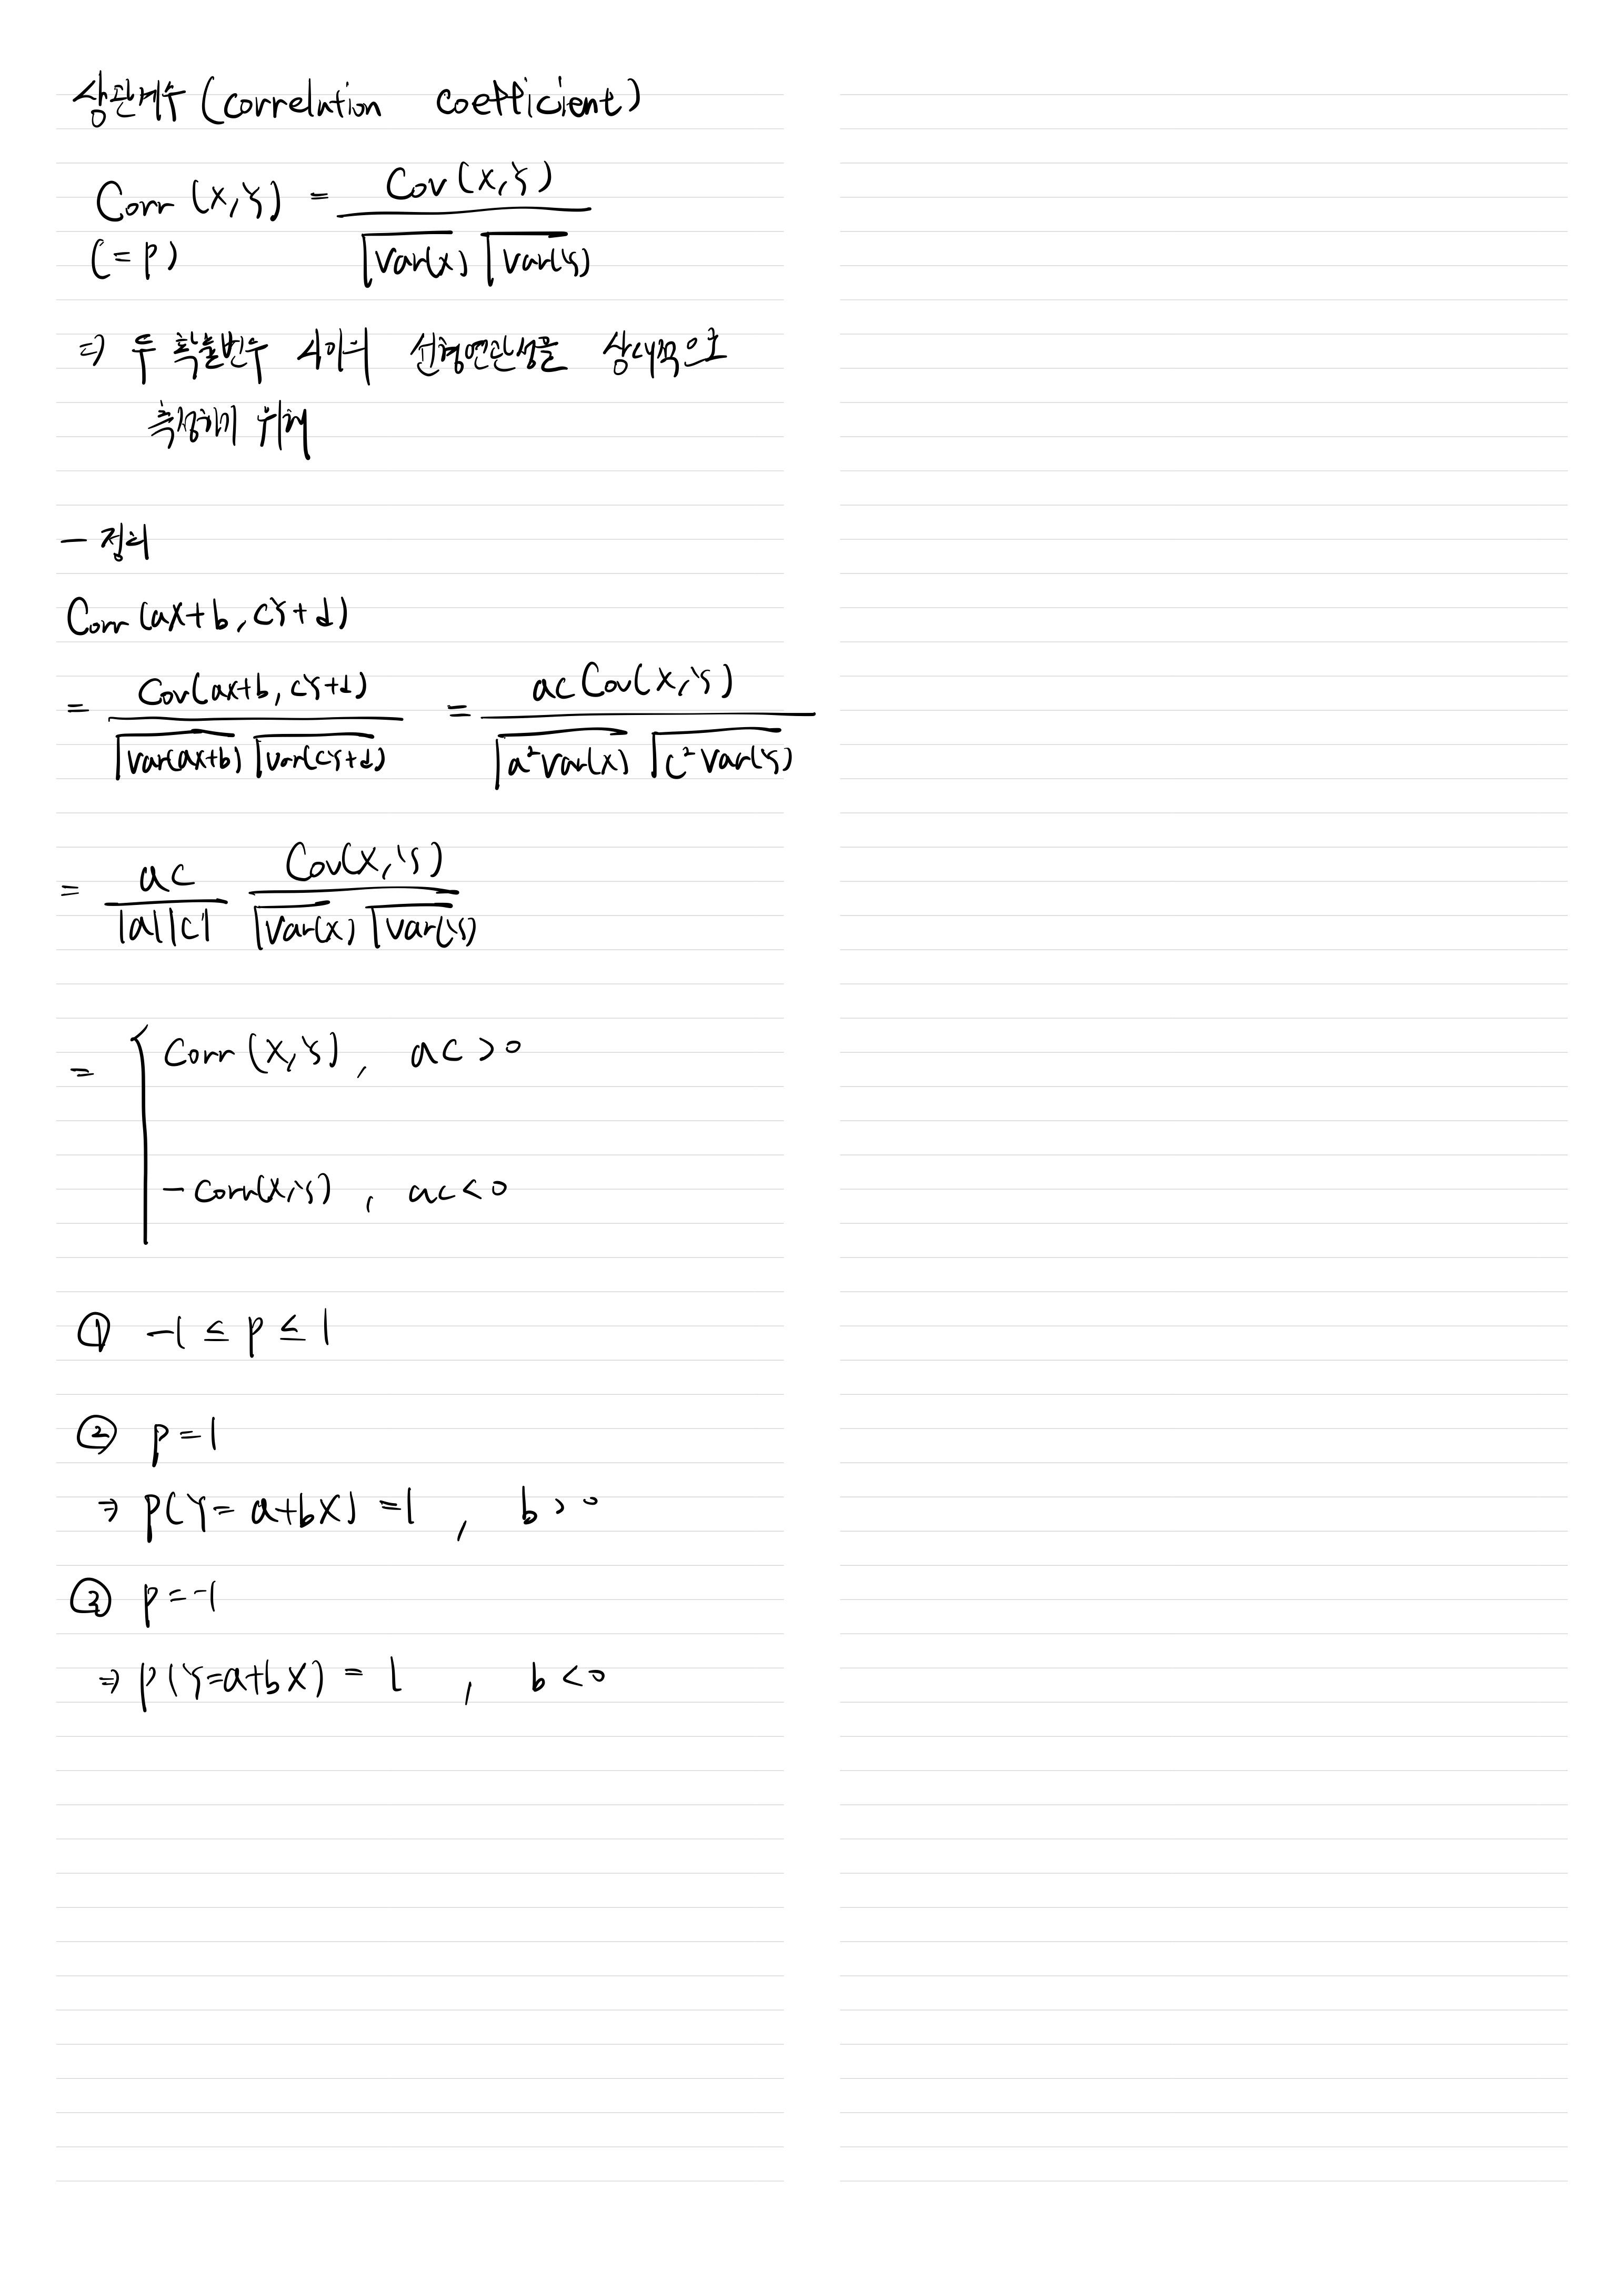 상관계수 (correlation coefficient)
Corr (X,Y) = Cov (X,Y) / √Var(X) √Var(Y)
(= p)
⇒ 두 확률변수 사이의 선형연관성을 상대적으로
측정하기 위해
- 정의
Corr (aX+b, cY+d)
= Cov(aX+b, cY+d) / √Var(aX+b) √Var(cY+d) = ac Cov(X,Y) / √a²Var(X) √c²Var(Y)
= ac / |a||c| Cov(X,Y) / √Var(X) √Var(Y)
= { Corr (X,Y) , ac > 0
- Corr(X,Y) , ac < 0
① -1 ≤ p ≤ 1
② p = 1
⇒ P(Y = a+bX) = 1 , b > 0
③ p = -1
⇒ P(Y=a+bX) = 1 , b < 0